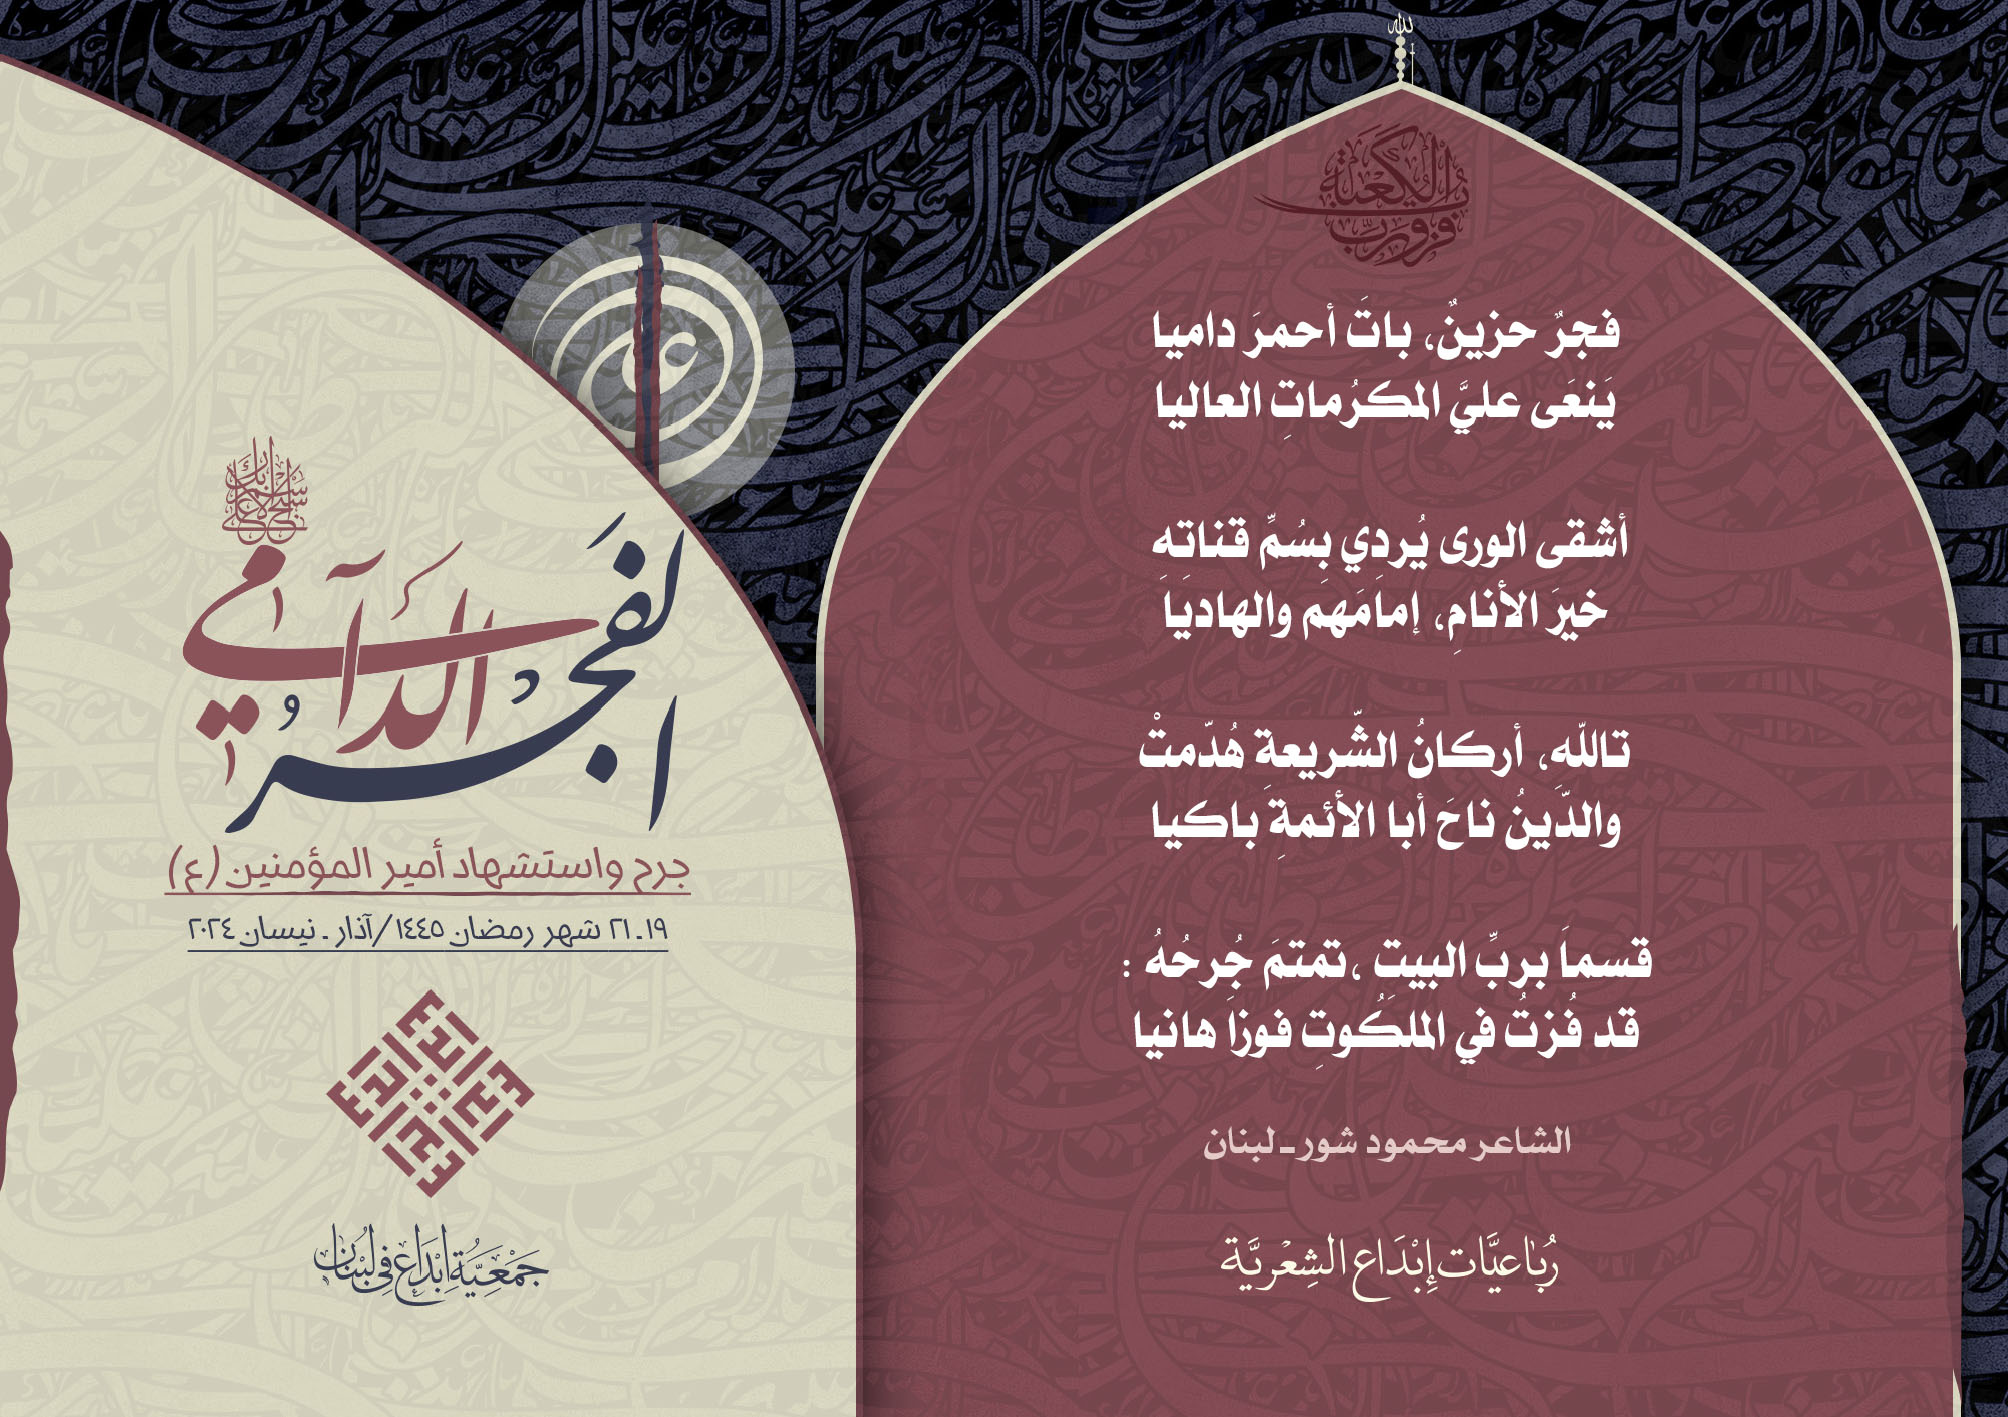 لله
فزت ورب الكعبة
فجرٌ حزينٌ، باتَ أحمرَ داميا
يَنعَى عليَّ المكرُماتِ العاليا
أشقى الورى يُردِي بِسُمِّ قناتِه
خيرَ الأنامِ، إمامَهم والهاديَا
تاللّهِ، أركانُ الشّريعةِ هُدّمتْ
والدّينُ ناحَ أبا الأئمةِ باكيا
قسماَ بربِّ البيتِ ،تمتمَ جُرحُهُ :
قد فُزتُ في الملَكُوتِ فوزاَ هانيا
الشاعر محمود شور ـ لبنان
رُبَاعيَّات إِبْدَاع الشِعْريَّة
علي
سبح اسم ربك الأعلى
الفَجرُ الدَّامي
جرح واستشهاد أمير المؤمنين (ع)
١٩ـ٢١ شهر رمضان ١٤٤٥/آذار ـ نيسان ٢٠٢٤
إبداع
جَمْعِيَّةِ إبْدَاع فِي لُبْنَان